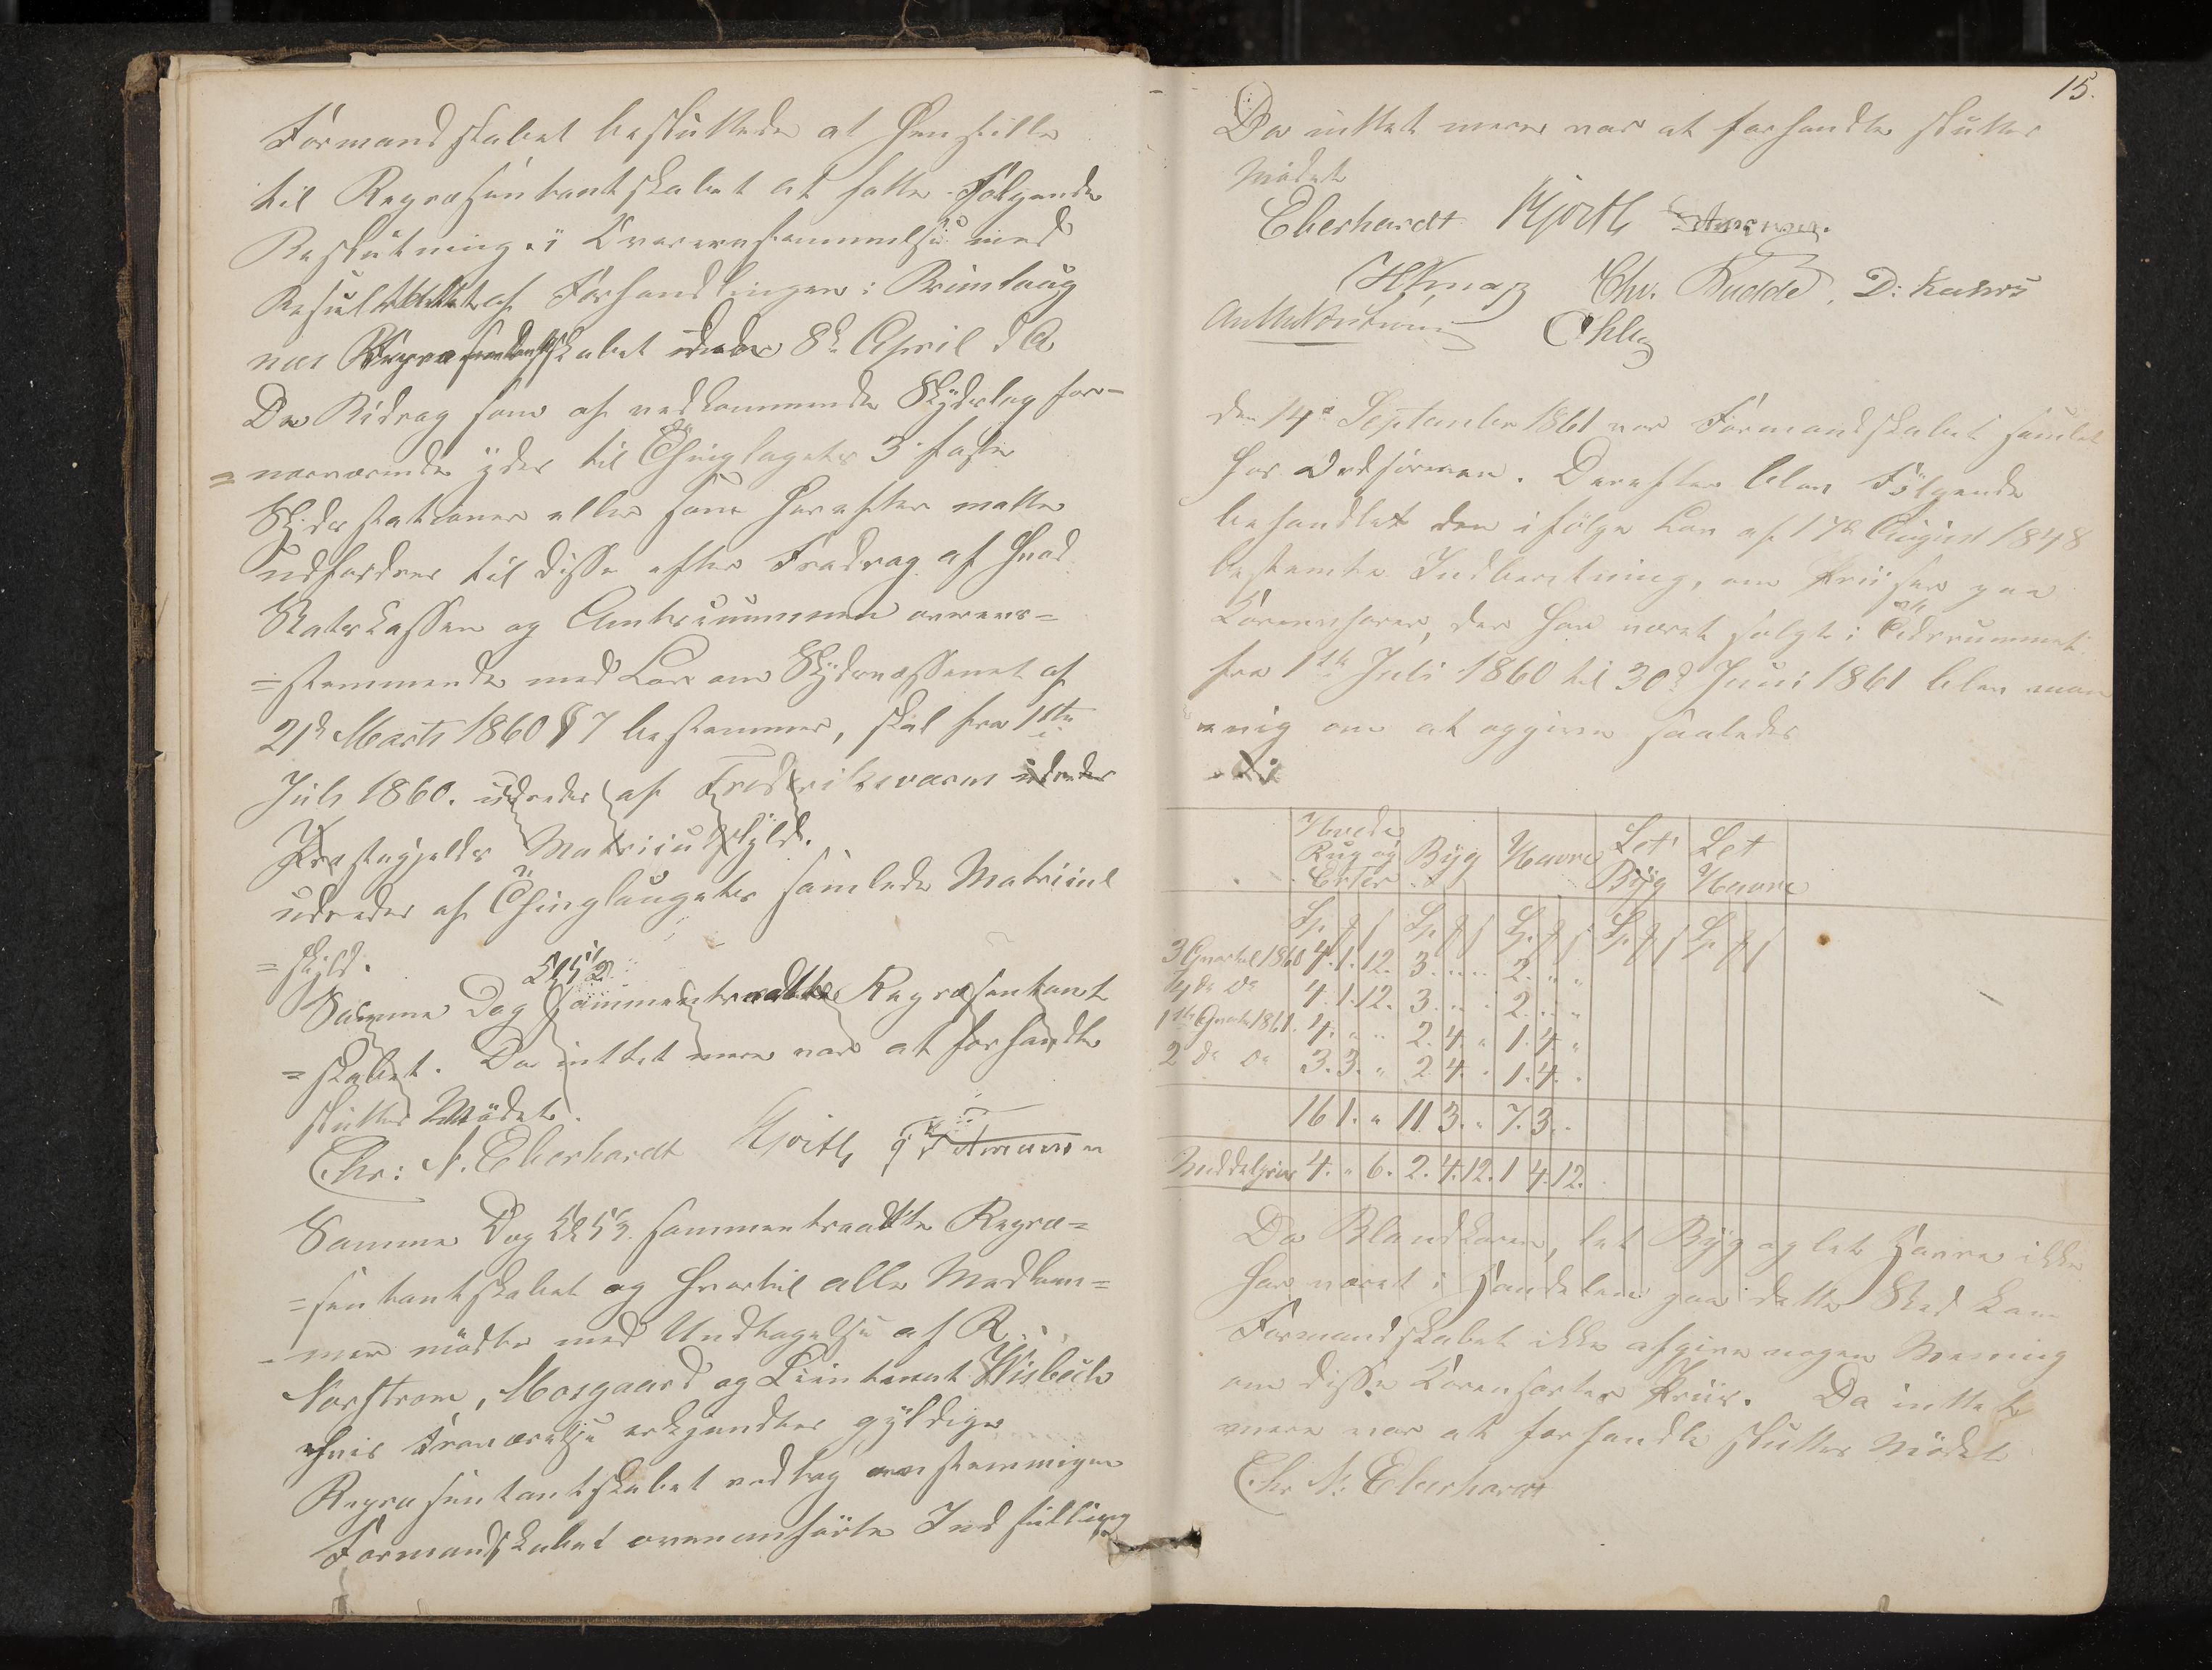 Formandskabet besluttede at henstille
til Repræsentantskabet at fatte Følgende
Beslutning i Overeensstemmelse med
Resultatet af Forhandlingen i Brunlaug
næs Repræsentantskabet 8de April d A
De Bidrag som af vedkommende Skydslag for-
=nærværende ydes til Thinglagets 3 faste
Skydsstationer eller som herefter maatte
udfordres til disse efter Fradrag af hvad
Statskassen og Amtscommunen overens=
=stemmende med Lov om Skydsvæssenet af
21de Marts 1860 § 7 bestemmer, skal fra 1ste
Juli 1860. udredes af Fredriksværns udredes
Præstegjelds Matriculskyld.
udredes af Thinglaugets samlede Matricul
=skyld.
Samme Dag Kl 5 1/2 sammentraadte Repræsentant
=skabet. Da inttet mere var at forhandle
sluttes Mödet.
Chr: N. Eberhardt Hjorth
Samme Dag Kl 5 1/2 sammentraadte Repræ=
=sentantskabet og hvortil alle Medlem=
=mer mödte med Undtagelse af R.
Norstrøm, Mosgaard og Lieutenant Wisbech
hvis Fraværelse erkjendtes gyldige
Repræsentantskabet vedtog eenstemmigen
Formandskabet ovenanförte Indstilling
15.
Da inttet mere var at forhandle sluttes
Mödet
Eberhardt Hjorth
Chr. Budde, D:
Den 14de September 1861 var Formandskabet samlet
hos Ordföreren. Derefter blev Fölgende
behandlet den ifölge Lov af 17de August 1848
bestemte Indberetning, om Priisen paa
Kornvarer, der har været solgt i Tidsrummet
fra 1ste Juli 1860 til 30de Juni 1861 blev man
enig om at opgive saaledes
Hvede Rug og Erter Byg Havre Let Byg Let Havre
Sp. ß Sp. ß Sp. ß Sp. ß Sp. ß
3 Qvartal 1860 4. 1. 12. 3. " " 2. " "
4 do do 4. 1. 12. 3. " " 2. " "
1ste Qvartal 1861. 4. " " 2. 4. " 1. 4. "
2 do do 3. 3. " 2 4. " 1. 4. "
16 1. " 11 3. " 7. 3. "
Middelpris 4. " 6. 2. 4. 12. 1 4. 12.
Da Blandkorn, let Byg og let Havre ikke
har været i Handelen paa dette Sted kan
Formandskabet ikke afgive nogen Mening
om disse Kornsorter Priis. Da inttet
mere var at forhandle sluttes Mödet
Chr N: Eberhardt